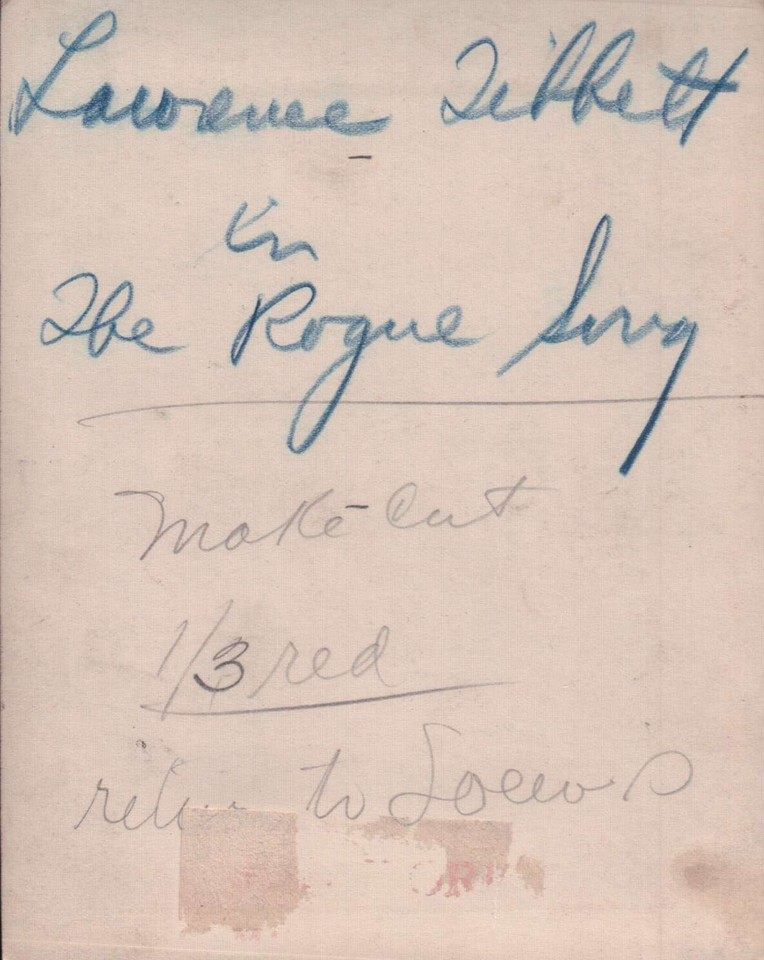 Lawrence Tibbett
in
The Rogue Song
Make cut
1/3 red
return to Loew's